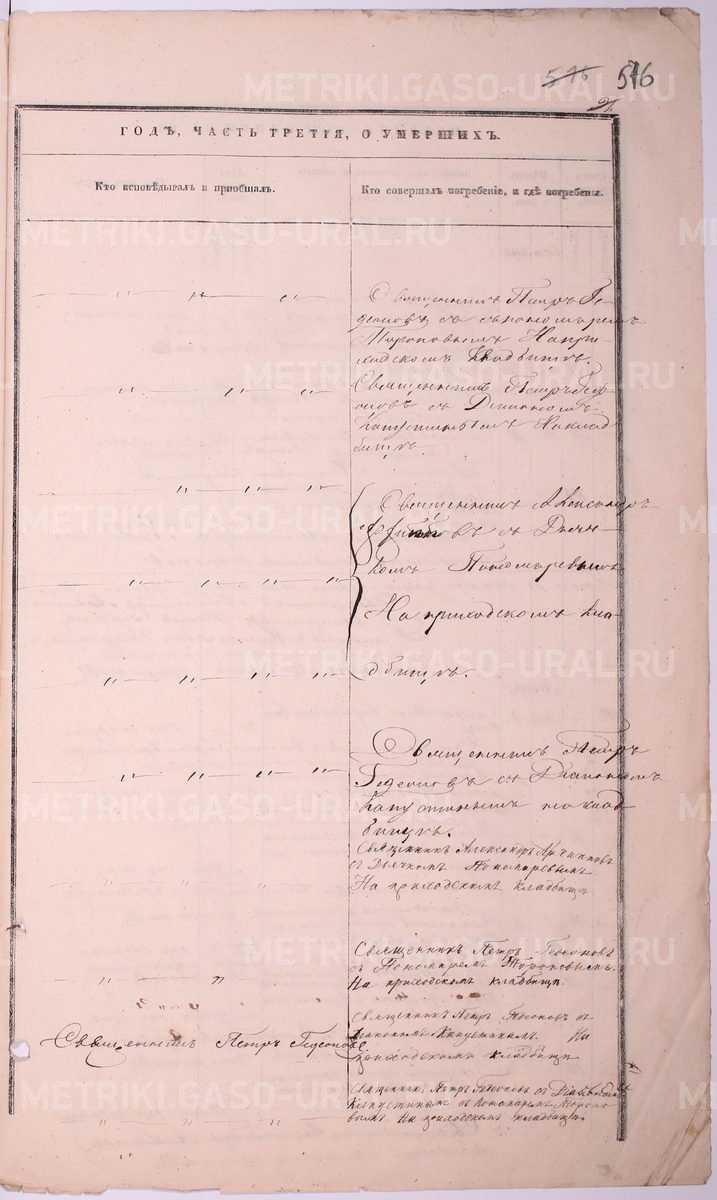 516 516
91.
METRIKI.GASO-URAL.RU
ГОДѢ, ЧАСТЬ ТРЕТІЯ, О УМЕРШИХЪ.
Кто исповѣдывалъ и пріобщалъ.
Кто совершалъ погребеніе, и гдѣ погребены.
Священникъ Петръ Ге-
деоновъ съ пономаремъ
Тороповымъ На при-
ходскомъ Кладбищѣ.
Священникъ Петръ Геде
оновъ съ Діакономъ
Капустинымъ На клад
бищѣ.
Священникъ Александръ
съ Дьяч-
комъ Пономаревымъ
На приходскомъ кла-
дбищѣ.
Священникъ Петръ
Гедеоновъ съ Діакономъ
Капустинымъ на клад
бищѣ.
Священникъ Александръ
съ Дьячкомъ Пономаревымъ
На приходскомъ кладбищѣ
Священникъ Петръ Гедеоновъ
съ Пономаремъ Тороповымъ.
На приходскомъ кладбищѣ.
Священникъ Петръ Гедеоновъ съ
Діакономъ Капустинымъ. На
приходскомъ кладбищѣ
Священникъ Петръ Гедеоновъ
Священникъ Петръ Гедеоновъ съ Діакономъ
Капустинымъ съ Пономаремъ Торопо
вымъ На приходскомъ кладбищѣ.